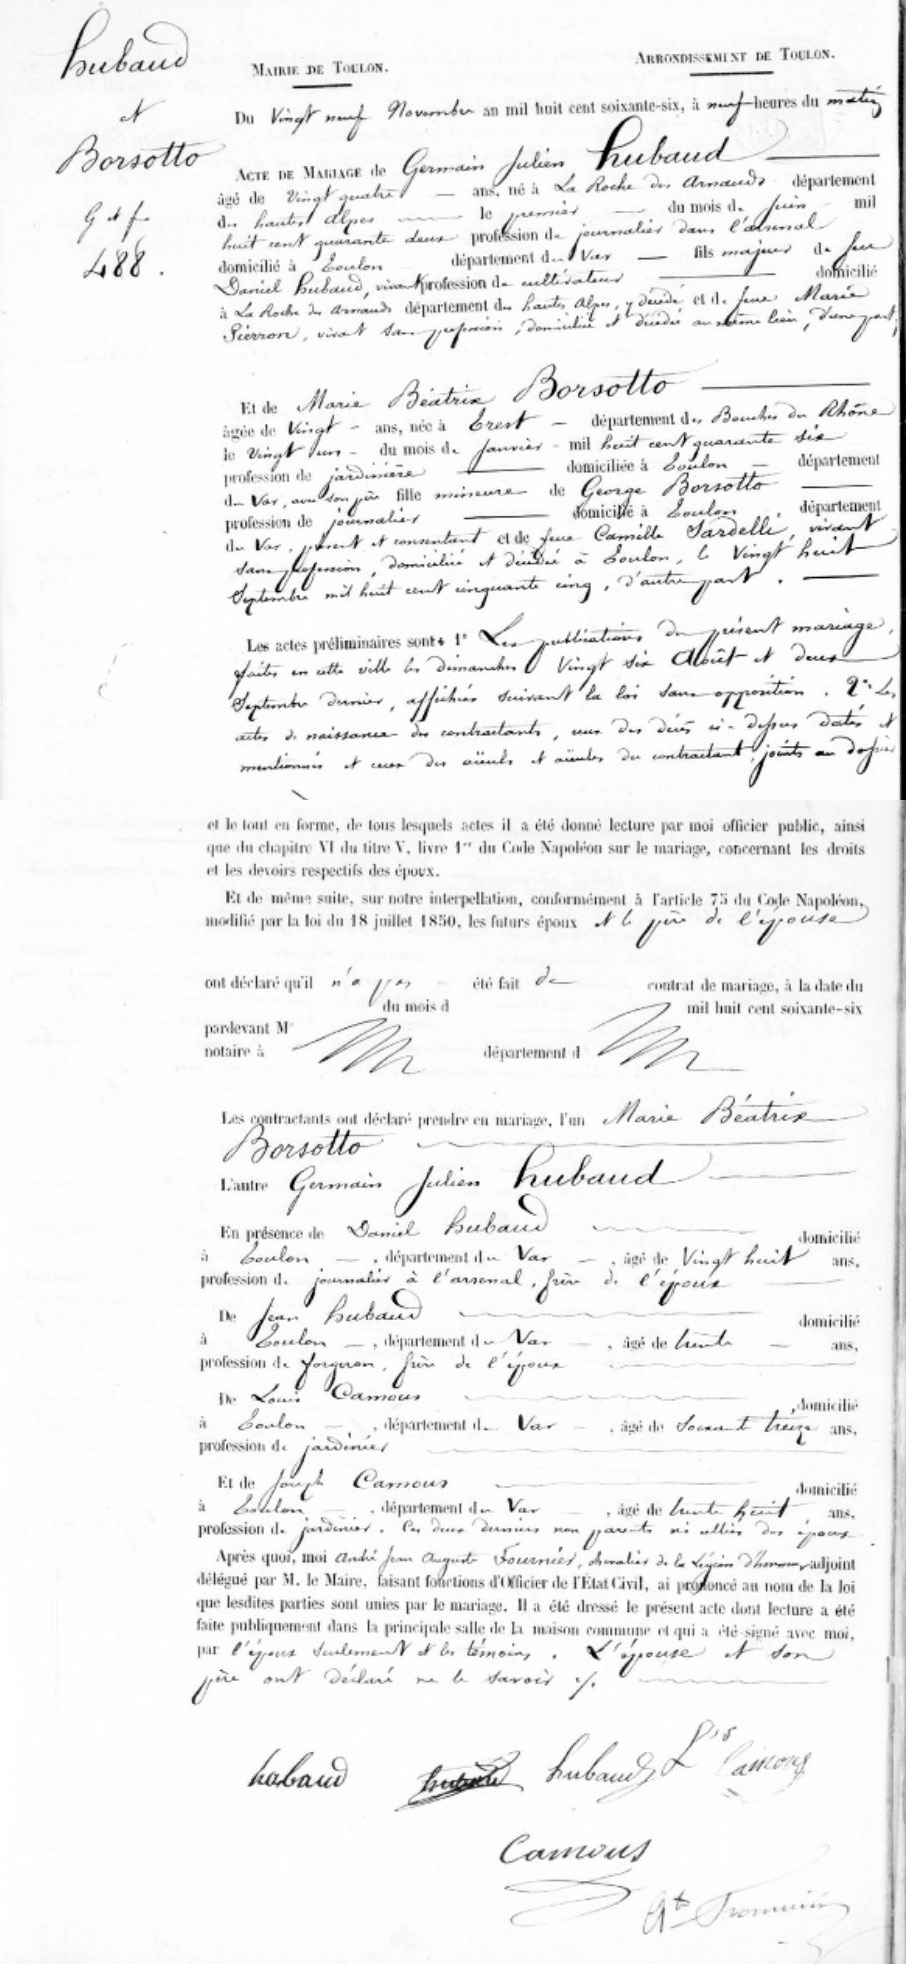 hubaud
et
Borsotto
G et f
488.
MAIRIE DE TOULON.
ARRONDISSEMENT DE TOULON.
Du Vingt neuf Novembre an mil huit cent soixante-six, à neuf heures du matin
ACTE DE MARIAGE de Germain Julien hubaud
âgé de Vingt quatre ans, né à La Roche des Arnauds département
des hautes Alpes le premier du mois de Juin mil
huit cent quarante deux profession de journalier dans l'arsenal
domicilié à Toulon département du Var fils majeur de feu
Daniel hubaud, vivant profession de cultivateur domicilié
à La Roche des Arnauds département des hautes Alpes, y décédé et de feue Marie
Pierron, vivant sans profession, domiciliée et décédée au même lieu, d'une part,
Et de Marie Béatrix Borsotto
âgée de Vingt ans, née à Trest département des Bouches du Rhône
le Vingt un du mois de Janvier mil huit cent quarante six
profession de jardinière domiciliée à Toulon département
du Var, avec son père fille mineure de George Borsotto
profession de journalier domicilié à Toulon, département
du Var, présent et consentant et de feue Camille Sardelli, vivant
sans profession, domiciliée et décédée à Toulon, le Vingt huit
Septembre mil huit cent cinquante cinq, d'autre part.
Les actes préliminaires sont : 1° Les publications du présent mariage,
faites en cette ville les dimanches Vingt six Août et deux
Septembre dernier, affichées suivant la loi sans opposition. 2° Les
actes de naissance des contractants, ceux des décès ci-dessus datés et
mentionnés et ceux des aïeuls et aïeules du contractant, joints au dossier
et le tout en forme, de tous lesquels actes il a été donné lecture par moi officier public, ainsi
que du chapitre VI du titre V, livre 1er du Code Napoléon sur le mariage, concernant les droits
et les devoirs respectifs des époux.
Et de même suite, sur notre interpellation, conformément à l'article 75 du Code Napoléon,
modifié par la loi du 18 juillet 1850, les futurs époux et le père de l'épouse
ont déclaré qu'il n'a pas été fait de contrat de mariage, à la date du
du mois d mil huit cent soixante-six
pardevant Me
notaire à département d
Les contractants ont déclaré prendre en mariage, l'un Marie Béatrix
Borsotto
L'autre Germain Julien hubaud
En présence de Daniel hubaud domicilié
à Toulon, département du Var, âgé de Vingt huit ans,
profession de journalier à l'arsenal, frère de l'époux
De Jean hubaud domicilié
à Toulon, département du Var, âgé de trente ans,
profession de forgeron, frère de l'époux
De Louis Camous, domicilié
à Toulon, département du Var, âgé de Soixante treize ans,
profession de jardinier
Et de Joseph Camous domicilié
à Toulon, département du Var, âgé de trente huit ans,
profession de jardinier. Ces deux derniers non parents ni alliés des époux
Après quoi, moi André Jean Auguste Fournier, chevalier de la Légion d'honneur, adjoint
délégué par M. le Maire, faisant fonctions d'Officier de l'État Civil, ai prononcé au nom de la loi
que lesdites parties sont unies par le mariage. Il a été dressé le présent acte dont lecture a été
faite publiquement dans la principale salle de la maison commune et qui a été signé avec moi,
par l'époux seulement et les témoins. L'épouse et son
père ont déclaré ne le savoir ./.
hubaud hubaud Ls Camous
Camous